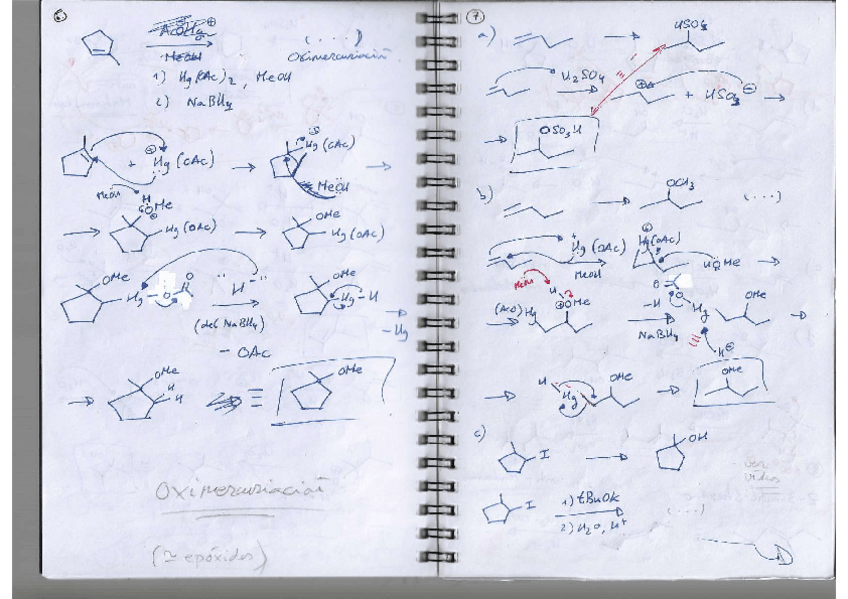 6
AcOHg ⊕
MeOH
(....)
Oximercuriación
1) Hg(OAc)2, MeOH
2) NaBH4
+ Hg(OAc)
⊕
MeOH
Hg(OAc)
MeOH
H
OMe
Hg(OAc)
OMe
Hg(OAc)
OMe
Hg-O
H
(del NaBH4)
- OAc
OMe
Hg-H
- Hg
OMe
H
H
≡
OMe
Oximercuriación
(≃ epóxidos)
7
a)
HSO3
H2SO4
⊕
+ HSO3 ⊖
OSO3H
b)
OCH3
(....)
Hg(OAc)
MeOH
Hg(OAc)
HOMe
MeOH
(AcO)Hg
H
OMe
NaBH4
O
-H
Hg
OMe
H⊖
H
Hg
OMe
OMe
c)
I
OH
I
1) tBuOK
2) H2O, H+
(....)